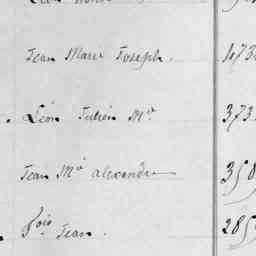 Jean Marie Joseph.
Léon Julien Mie
373
Jean Mie alexandre
358
fois Jean.
285